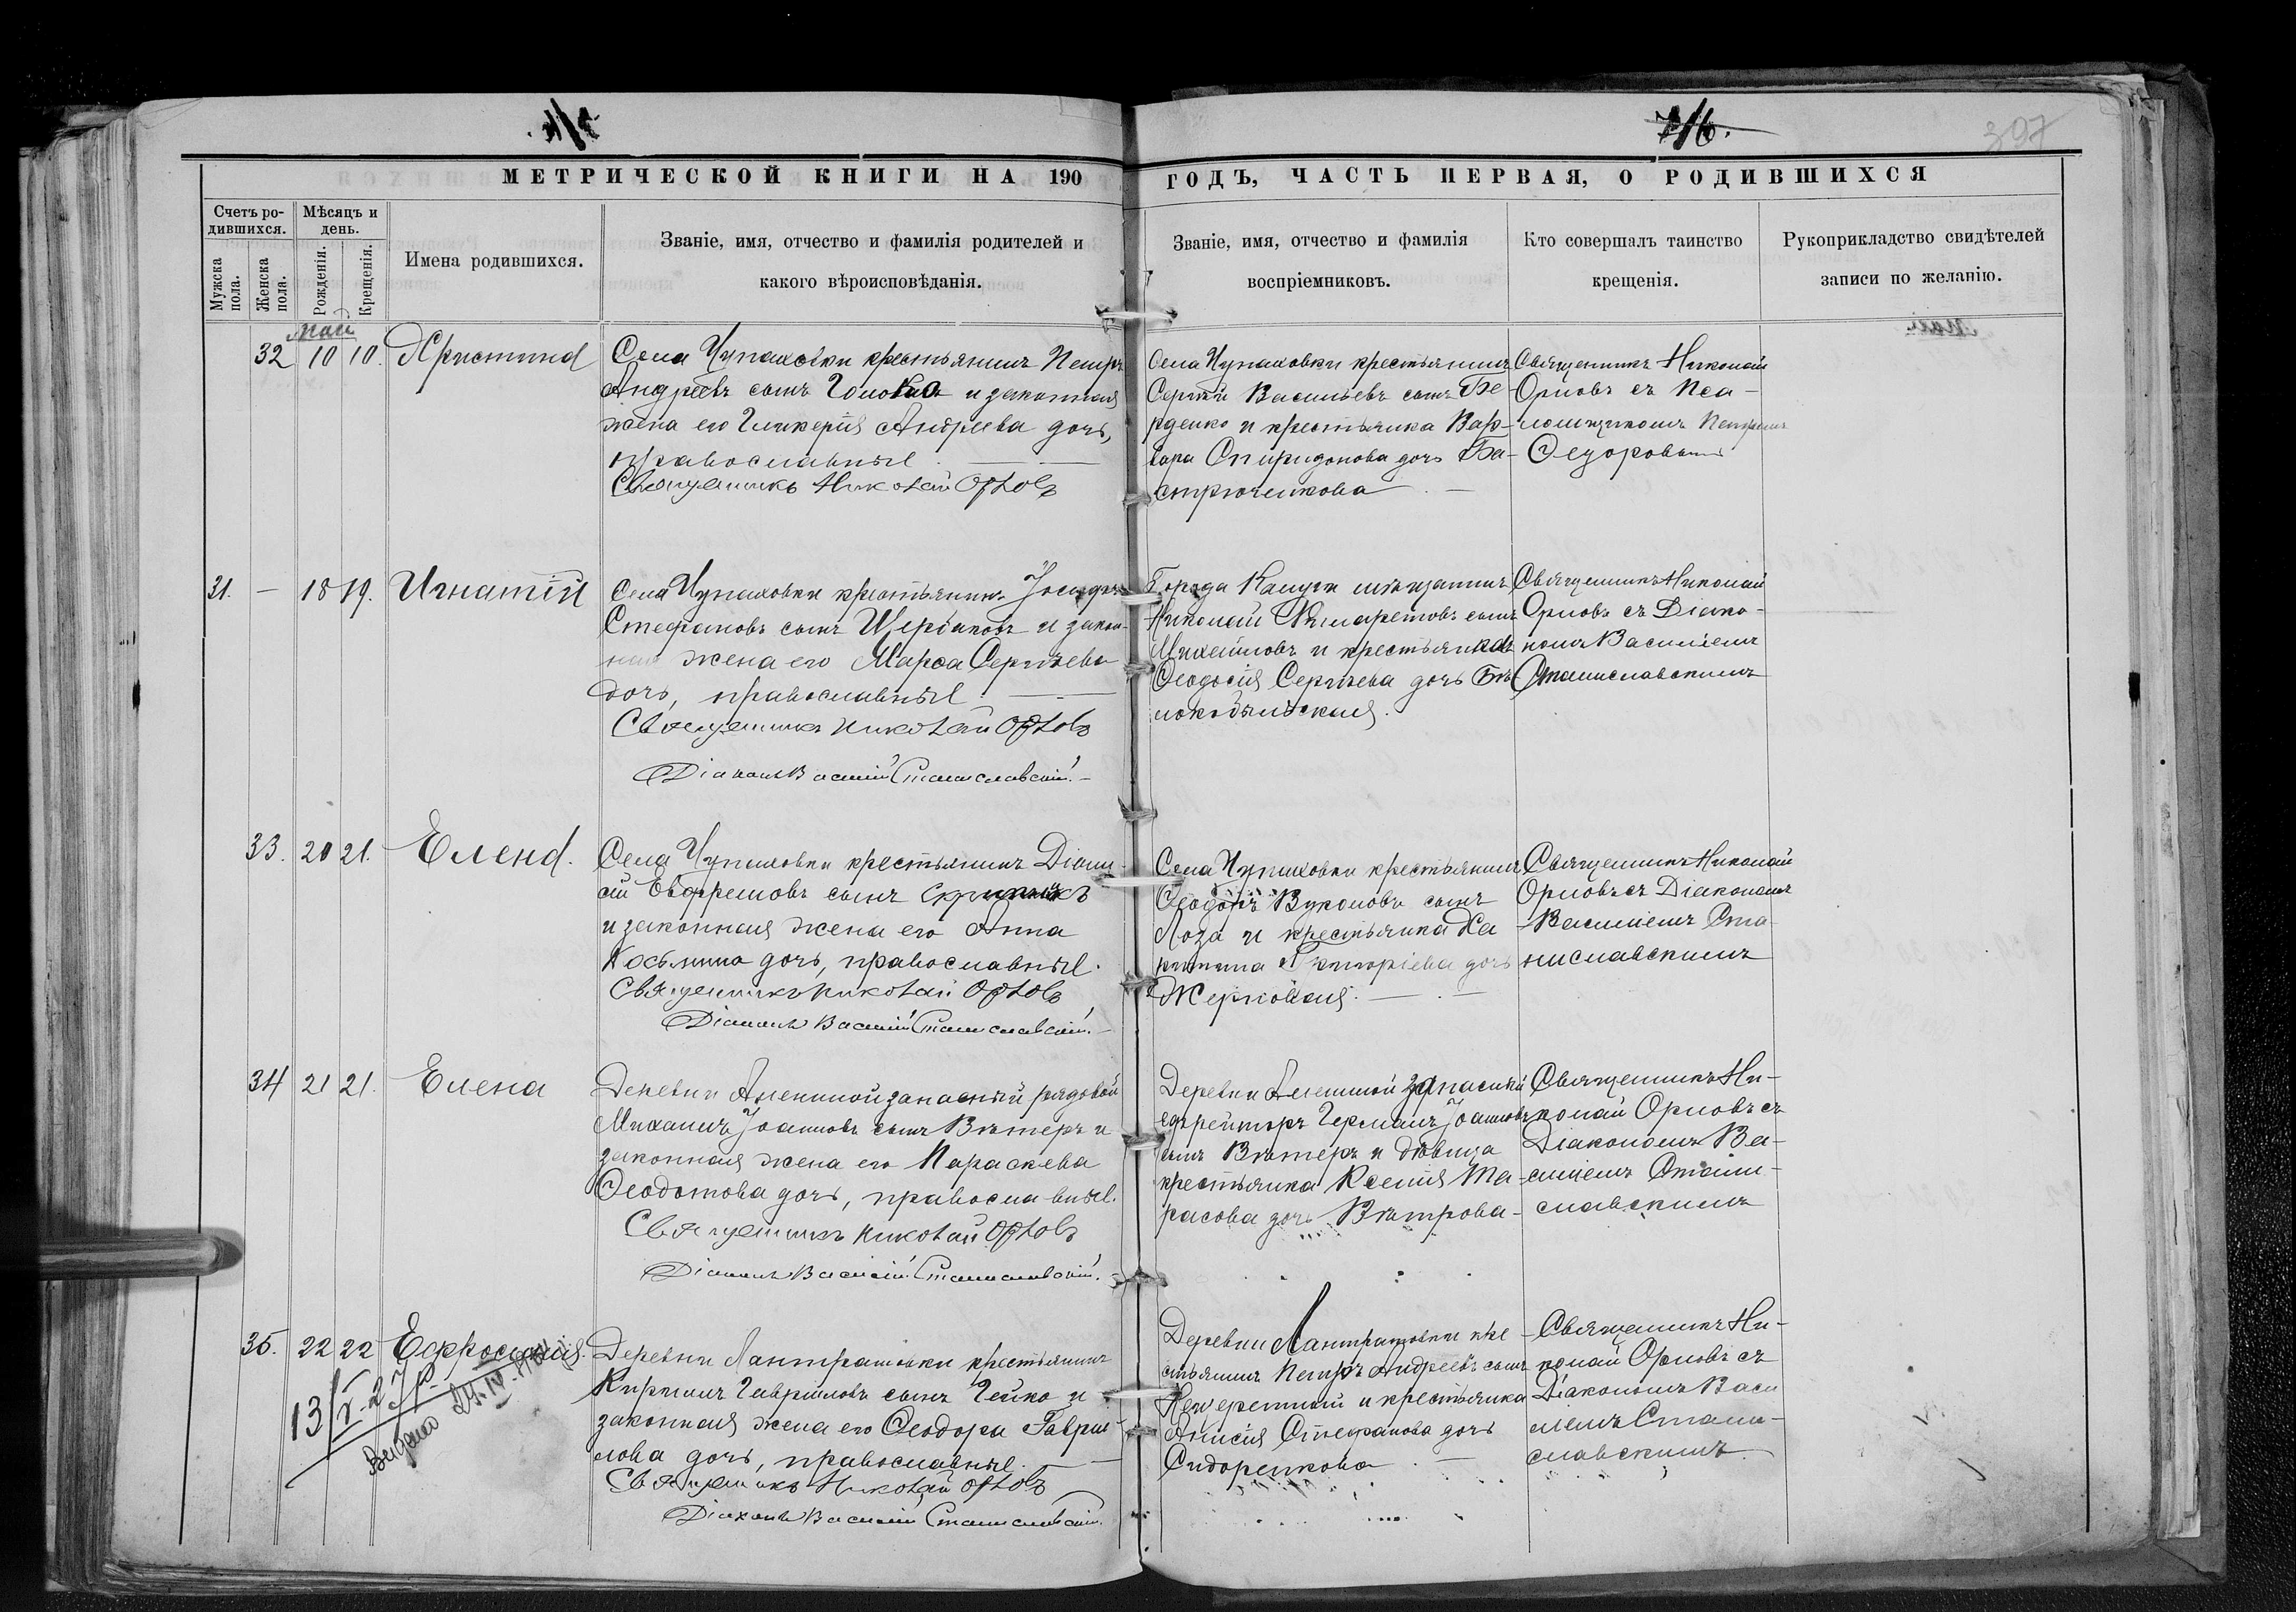 716.
397
МЕТРИЧЕСКОЙ КНИГИ НА 190
ГОДЪ, ЧАСТЬ ПЕРВАЯ, О РОДИВШИХСЯ
Счетъ ро-
дившихся.
Мужска
пола.
Женска
пола.
Мѣсяцъ и
день.
Рожденія.
Крещенія.
Имена родившихся.
Званіе, имя, отчество и фамилія родителей и
какого вѣроисповѣданія.
Званіе, имя, отчество и фамилія
воспріемниковъ.
Кто совершалъ таинство
крещенія.
Рукоприкладство свидѣтелей
записи по желанію.
Май
32 10 10. Христина
Села Чупаховки крестьянинъ Петръ
Андреевъ сынъ Головка и законная
жена его Гликерія Андреева дочь,
православные
Священникъ Николай Орловъ
Села Чупаховки крестьянинъ
Сергій Васильевъ сынъ Бе-
рденко и крестьянка Вар-
вара Спиридонова дочь Ба-
стрюченкова
Священникъ Николай
Орловъ съ Пса-
ломщикомъ Петромъ
Федоровымъ
31. — 18 19. Игнатій
Села Чупаховки крестьянинъ Іосифъ
Стефановъ сынъ Щербаковъ и закон-
ная жена его Марѳа Сергѣева
дочь, православные
Священникъ Николай Орловъ
Діаконъ Василій Станиславскій.
Города Калуги мѣщанинъ
Николай
Михайловъ и крестьянка
Ѳеодосія Сергѣева дочь Бѣ-
локобыльская.
Священникъ Николай
Орловъ съ Діако-
номъ Василіемъ
Станиславскимъ
33. 20 21. Елена.
Села Чупаховки крестьянинъ Діони-
сій Евфремовъ сынъ Скрыпникъ
и законная жена его Анна
Косьмина дочь, православные.
Священникъ Николай Орловъ
Діаконъ Василій Станиславскій.
Села Чупаховки крестьянинъ
Ѳеодоръ Вуколовъ сынъ
Лоза и крестьянка Ха
ритина Григоріева дочь
Жерновая.
Священникъ Николай
Орловъ съ Діакономъ
Василіемъ Ста-
ниславскимъ
34 21 21. Елена
Деревни Аленшной запасный рядовой
Михаилъ Іоанновъ сынъ Вѣтеръ и
законная жена его Параскева
Ѳеодотова дочь, православные.
Священникъ Николай Орловъ
Діаконъ Василій Станиславскій.
Деревни Аленшной запасный
ефрейторъ Германъ Іоанновъ
сынъ Вѣтеръ и дѣвица
крестьянка Ксенія Та-
расова дочь Вѣтрова
Священникъ Ни-
колай Орловъ съ
Діакономъ Ва-
силіемъ Стани-
славскимъ
35. 22 22 Ефросинія.
13/V-27 р.
Видано 24.IV
Деревни Лантратовки крестьянинъ
Кириллъ Гавріиловъ сынъ Гейко и
законная жена его Ѳеодора Гаврі-
лова дочь, православные.
Священникъ Николай Орловъ
Діаконъ Василій Станиславскій.
Деревни Лантратовки кре-
стьянинъ Петръ Андреевъ сынъ
и крестьянка
Анисія Стефанова дочь
Сидоренкова
Священникъ Ни-
колай Орловъ съ
Діакономъ Васи
ліемъ Стани-
славскимъ.